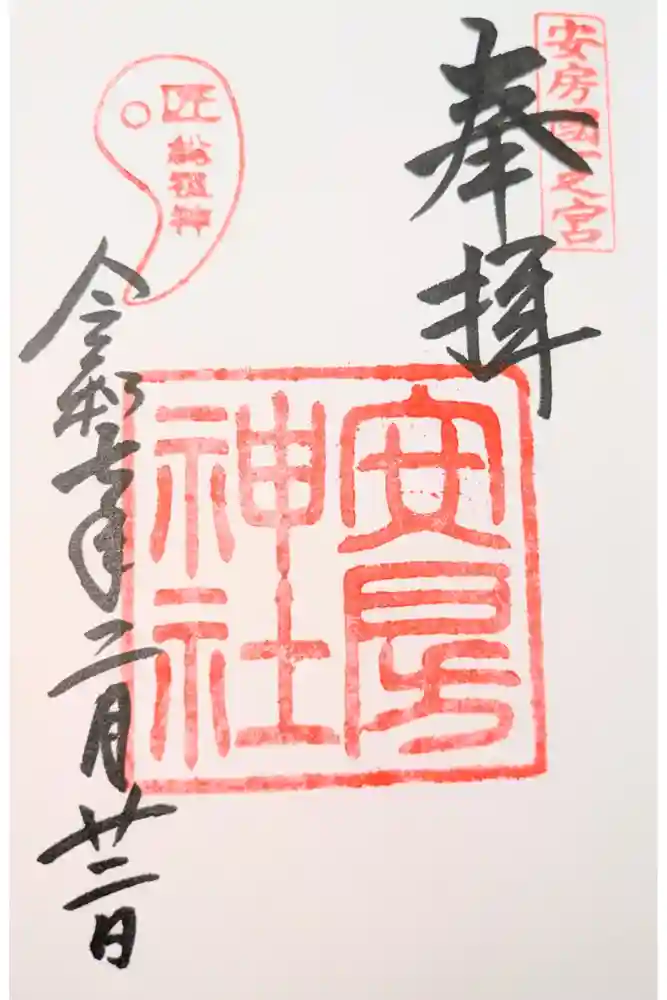 安房國一之宮
奉拝
安房
神社
匠
総祖神
令和七年二月廿二日